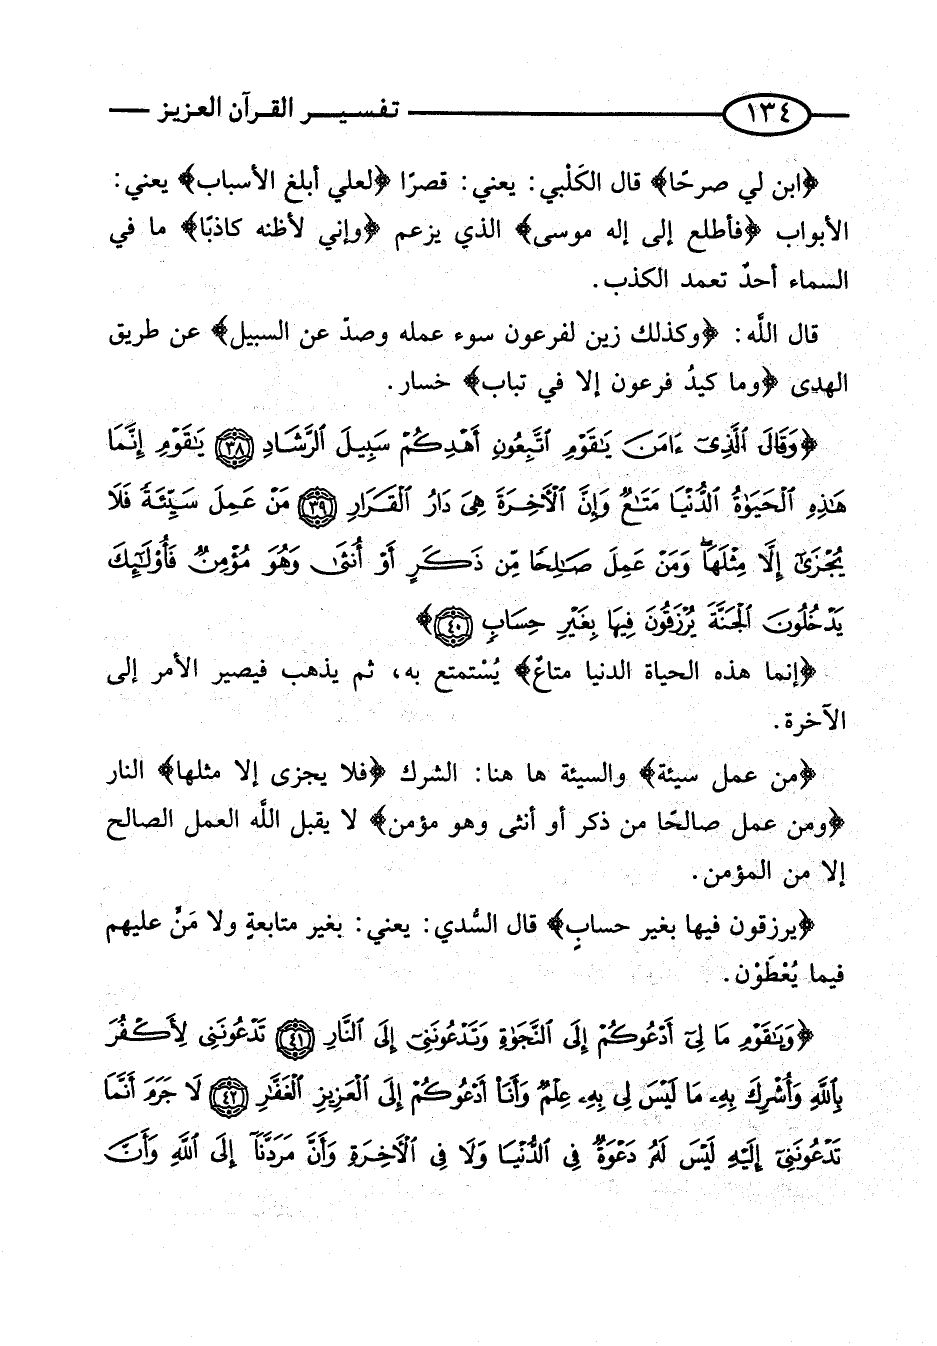 ١٣٤ تفسير القرآن العزيز
﴿ابن لي صرحًا﴾ قال الكَلْبي: يعني: قصرًا ﴿لعلي أبلغ الأسباب﴾ يعني:
الأبواب ﴿فأطلع إلى إله موسى﴾ الذي يزعم ﴿وإني لأظنه كاذبًا﴾ ما في
السماء أحدٌ تعمد الكذب.
قال اللَّه: ﴿وكذلك زين لفرعون سوء عمله وصدّ عن السبيل﴾ عن طريق
الهدى ﴿وما كيدُ فرعون إلا في تباب﴾ خسار.
﴿وَقَالَ ٱلَّذِىٓ ءَامَنَ يَٰقَوْمِ ٱتَّبِعُونِ أَهْدِكُمْ سَبِيلَ ٱلرَّشَادِ ٣٨ يَٰقَوْمِ إِنَّمَا
هَٰذِهِ ٱلْحَيَوٰةُ ٱلدُّنْيَا مَتَٰعٌ وَإِنَّ ٱلْأَخِرَةَ هِىَ دَارُ ٱلْقَرَارِ ٣٩ مَنْ عَمِلَ سَيِّئَةً فَلَا
يُجْزَىٰٓ إِلَّا مِثْلَهَا ۖ وَمَنْ عَمِلَ صَٰلِحًا مِّن ذَكَرٍ أَوْ أُنثَىٰ وَهُوَ مُؤْمِنٌ فَأُو۟لَٰٓئِكَ
يَدْخُلُونَ ٱلْجَنَّةَ يُرْزَقُونَ فِيهَا بِغَيْرِ حِسَابٍ ٤٠﴾
﴿إنما هذه الحياة الدنيا متاعٌ﴾ يُسْتمتع به، ثم يذهب فيصير الأمر إلى
الآخرة.
﴿من عمل سيئة﴾ والسيئة ها هنا: الشرك ﴿فلا يجزى إلا مثلها﴾ النار
﴿ومن عمل صالحًا من ذكر أو أنثى وهو مؤمن﴾ لا يقبل اللَّه العمل الصالح
إلا من المؤمن.
﴿يرزقون فيها بغير حسابٍ﴾ قال السُّدي: يعني: بغير متابعةٍ ولا مَنٍّ عليهم
فيما يُعْطَوْن.
﴿وَيَٰقَوْمِ مَا لِىٓ أَدْعُوكُمْ إِلَى ٱلنَّجَوٰةِ وَتَدْعُونَنِىٓ إِلَى ٱلنَّارِ ٤١ تَدْعُونَنِى لِأَكْفُرَ
بِٱللَّهِ وَأُشْرِكَ بِهِۦ مَا لَيْسَ لِى بِهِۦ عِلْمٌ وَأَنَا۠ أَدْعُوكُمْ إِلَى ٱلْعَزِيزِ ٱلْغَفَّٰرِ ٤٢ لَا جَرَمَ أَنَّمَا
تَدْعُونَنِىٓ إِلَيْهِ لَيْسَ لَهُۥ دَعْوَةٌ فِى ٱلدُّنْيَا وَلَا فِى ٱلْأَخِرَةِ وَأَنَّ مَرَدَّنَآ إِلَى ٱللَّهِ وَأَنَّ